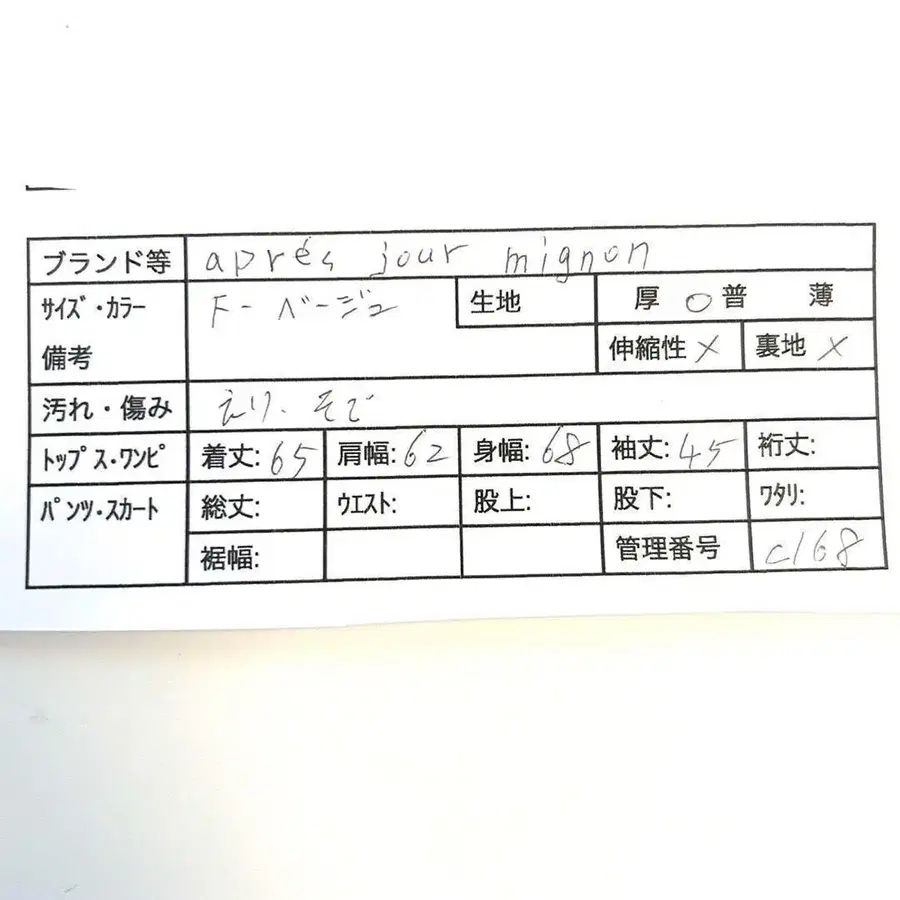 ブランド等 aprés jour mignon
サイズ・カラー F- ベージュ 生地 厚 ○普 薄
備考 伸縮性 × 裏地 ×
汚れ・傷み えり、そで
トップス・ワンピ 着丈:65 肩幅:62 身幅:68 袖丈:45 裄丈:
パンツ・スカート 総丈: ウエスト: 股上: 股下: ワタリ:
裾幅: 管理番号 c168